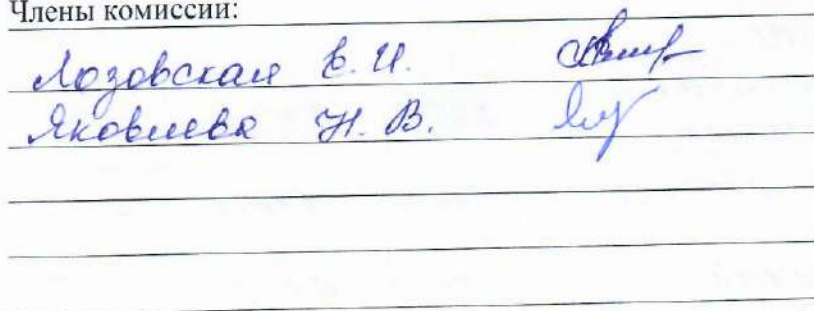 Члены комиссии:
Лозовская Е. И.
Яковлева Н. В.